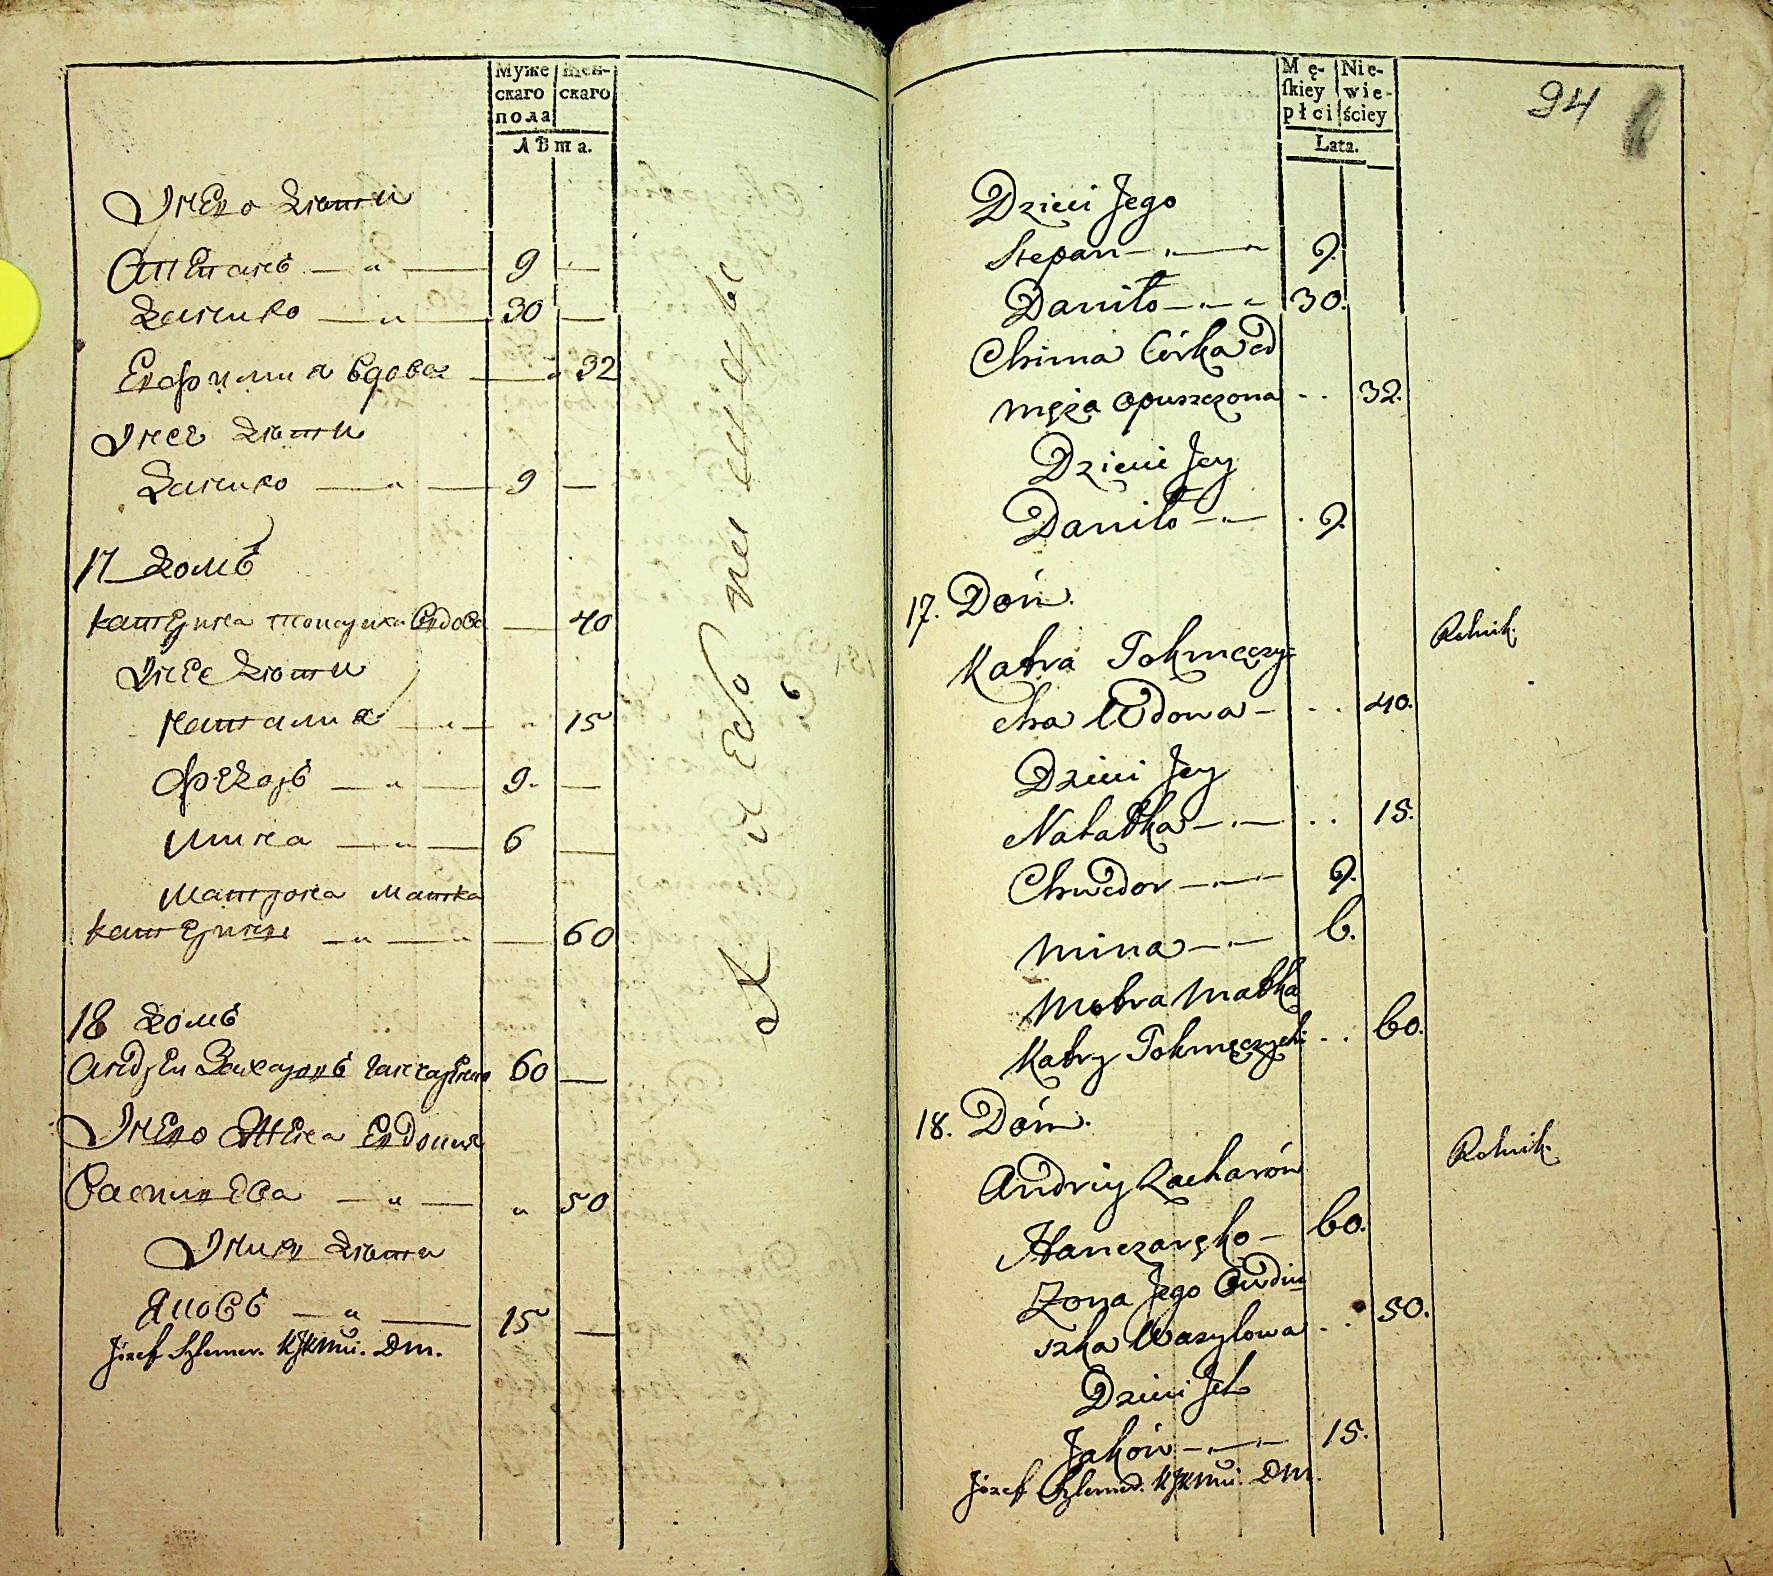 Муже
скаго
пола
Жен-
скаго
Лѣта.
У него дѣти
Степанъ — „ — 9 —
Данило — „ — 30 —
Евфимия вдова — „ 32
У нее дѣти
Данило — „ — 9 —
17 домъ
Катерина вдова — 40
У нее дѣти
Наталия — „ — „ 15
Федоръ — „ — 9. —
Мина — „ — 6 —
Матрона матка
Катерины — „ — „ — 60
18 домъ
Андрей Захаровъ Ганчаренко 60 —
У него жена Евдокия
Василева — „ — „ 50
У них дѣти
Яковъ — „ — 15 —
Józef DM.
Mę-
ſkiey
płci
Nie-
wie-
ściey
Lata.
94
Dzieci Jego
Stepan — „ — „ 9.
Daniło — „ — „ 30.
Chima Córka od
męża opuszczona . . 32.
Dzieci Jey
Daniło — „ — . 9.
17. Dóm.
Rolnik.
Katra Tokmęczy=
cha Wdowa — . . 40.
Dzieci Jey
Natałka — . — . . 15.
Chwedor — „ — 9.
Mina — „ — 6.
Motra Matka
Katry Tokmęczychi . . 60.
18. Dóm.
Rolnik.
Andriy Zacharów
Hanczaręko — 60.
Zona Jego Owdiu=
szka Wasylowa . . 50.
Dzieci Ich
Jaków — „ — 15.
Józef DM.